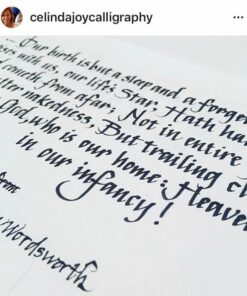 celindajoycalligraphy
... Our birth is but a sleep and a forge
with us, our life's Star, Hath had
from afar; Not in entire
nakedness, But trailing cl
God, who is our home: Heaven
in our infancy!
from
Wordsworth